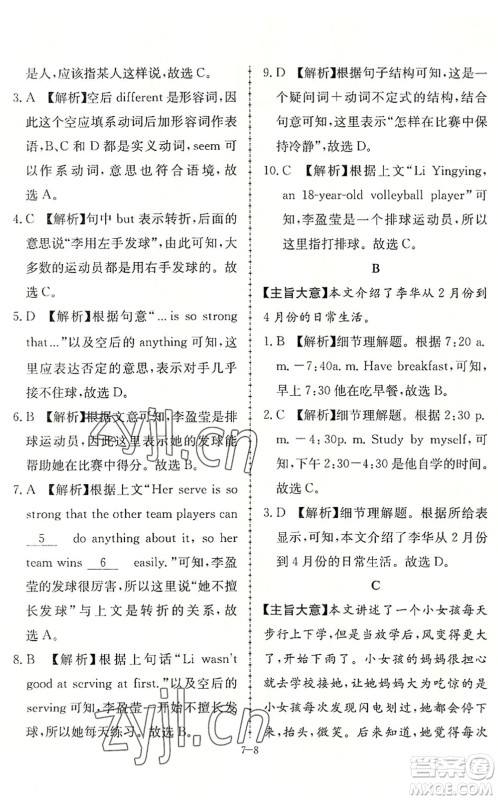 是人，应该指某人这样说，故选 C。
3. A 【解析】空后 different 是形容词，因
此这个空应填系动词后加形容词作表
语，B、C 和 D 都是实义动词，seem 可
以作系动词，意思也符合语境，故
选 A。
4. C 【解析】句中 but 表示转折，后面的
意思说“李用左手发球”，可知，大
多数的运动员都用右手发球的。故
选 C。
5. D 【解析】根据句意“…is so strong
that…”以及空后的 anything 可知，这
里应表达否定的意思，表示对手几乎
接不住球，故选 D。
6. B 【解析】根据文意可知，李盈莹是排
球运动员，这里表示她的发球能
帮助她在比赛中得分。故选 B。
7. A 【解析】根据上文“Her serve is so
strong that the other team players can
5 do anything about it, so her
team wins 6 easily.”可知，李盈
莹的发球厉害，所以这里说“她不擅
长发球”与上文是转折的关系，故
选 A。
8. B 【解析】根据上句话“Li wasn't
good at serving at first.”以及空后的
serving 可知，李盈莹一开始不擅长发
球，所以她每天练习。故选 B。
9. D 【解析】根据句子结构可知，这是
一个疑问词＋动词不定式的结构，结合
句意可知，表示“怎样在比赛中保
持冷静”，故选 D。
10. C 【解析】根据上文“Li Yingying,
an 18-year-old volleyball player”可
知，李盈莹是一个排球运动员，所以
这里指打排球。故选 C。
B
【主旨大意】本文介绍了李华从 2 月份到
4 月份的日常生活。
1. B 【解析】细节理解题。根据 7:20 a.
m. －7:40a. m. Have breakfast，可知，
早上 7:30 他在吃早餐，故选 B。
2. C 【解析】细节理解题。根据 2:30 p.
m. －4:30p. m. Study by myself，可
知，下午 2:30－4:30 他是自学的时间。
故选 C。
3. D 【解析】细节理解题。根据所给表
显示，可知，本文介绍了李华从 2 月份
到 4 月份的日常生活。故选 D。
C
【主旨大意】本文讲述了一个小女孩每天
步行上下学，一天，天气变化，开始打
雷，开始下雨了。小女孩的妈妈很担心就
去学校接她，让她妈妈大为吃惊的是小
女孩每次发现闪电出现的时候她都会停
下来，抬头，微笑。后来她妈妈觉得每次
7－8
zyjl.cn
zyjl.cn
答案圈
MXQE.COM